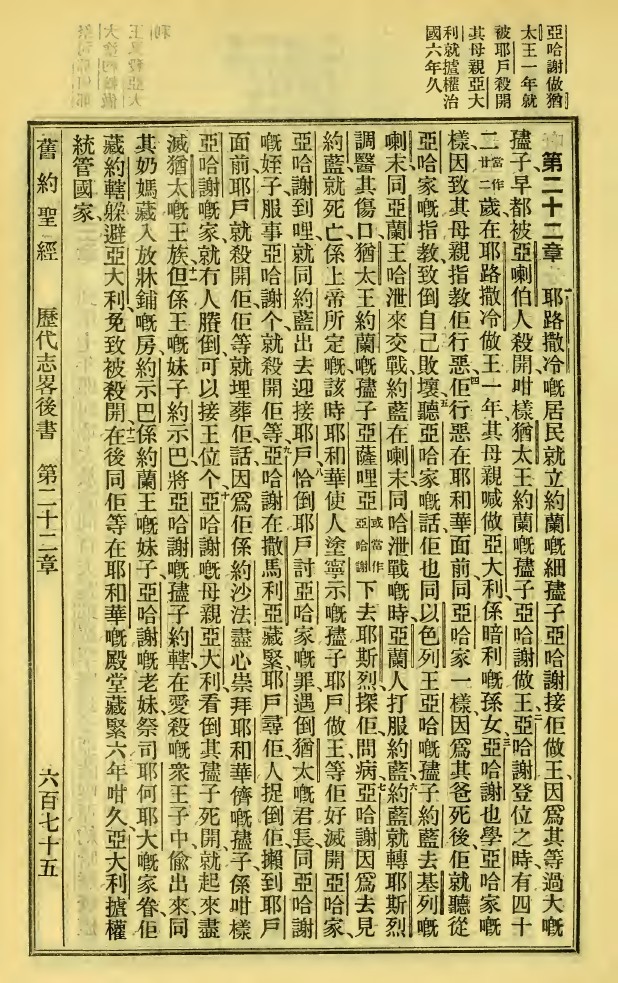 亞哈謝做猶
太王一年就
被耶戶殺開
其母親亞大
利就攄權治
國六年久
第二十二章 耶路撒冷嘅居民就立約蘭嘅細孻子亞哈謝接佢做王、因爲其等過大嘅
孻子早都被亞喇伯人殺開咁樣猶太王約蘭嘅孻子亞哈謝做王、二亞哈謝登位之時有四十
二當作廿二歲在耶路撒冷做王一年其母親喊做亞大利係暗利嘅孫女、三亞哈謝也學亞哈家嘅
樣、因致其母親指教佢行惡、四佢行惡在耶和華面前同亞哈家一樣因爲其爸死後佢就聽從
亞哈家嘅指教致倒自己敗壞、五聽亞哈家嘅話佢也同以色列王亞哈嘅孻子約藍去基列嘅
喇末同亞蘭王哈泄來交戰約藍在喇末同哈泄戰嘅時亞蘭人打服約藍、六約藍就轉耶斯烈
調醫其傷口猶太王約蘭嘅孻子亞薩哩亞或當作亞哈謝下去耶斯烈探佢問病、七亞哈謝因爲去見
約藍就死亡、係上帝所定嘅該時耶和華使人塗寧示嘅孻子耶戶做王等佢好滅開亞哈家、
亞哈謝到哩就同約藍出去迎接耶戶、八恰倒耶戶討亞哈家嘅罪、遇倒猶太嘅君長同亞哈謝
嘅姪子、服事亞哈謝个就殺開佢等、九亞哈謝在撒馬利亞藏緊耶戶尋佢、人捉倒佢、攋到耶戶
面前、耶戶就殺開佢佢等就埋葬佢、話因爲佢係約沙法盡心崇拜耶和華儕嘅孻子、係咁樣
亞哈謝嘅家就冇人賸倒可以接王位个、十亞哈謝嘅母親亞大利看倒其孻子死開就起來盡
滅猶太嘅王族、十一但係王嘅妹子約示巴將亞哈謝嘅孻子約轄在愛殺嘅衆王子中偸出來、同
其奶媽藏入放牀鋪嘅房約示巴係約蘭王嘅妹子、亞哈謝嘅老妹祭司耶何耶大嘅家眷佢
藏約轄躲避亞大利、免致被殺開、十二在後同佢等在耶和華嘅殿堂藏緊六年咁久、亞大利攄權
統管國家、
舊約聖經 歷代志畧後書 第二十二章 六百七十五